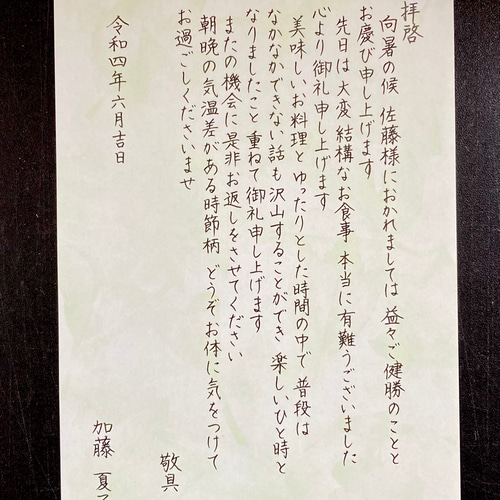 拝啓
向暑の候 佐藤様におかれましては 益々ご健勝のことと
お慶び申し上げます
先日は 大変 結構なお食事 本当に有難うございました
心より御礼 申し上げます
美味しいお料理と ゆったりとした時間の中で 普段は
なかなかできない話も 沢山することができ 楽しいひと時と
なりましたこと 重ねて 御礼申し上げます
またの機会に 是非 お返しをさせてください
朝晩の気温差がある時節柄 どうぞ お体に気をつけて
お過ごしくださいませ
敬具
令和四年六月吉日
加藤 夏